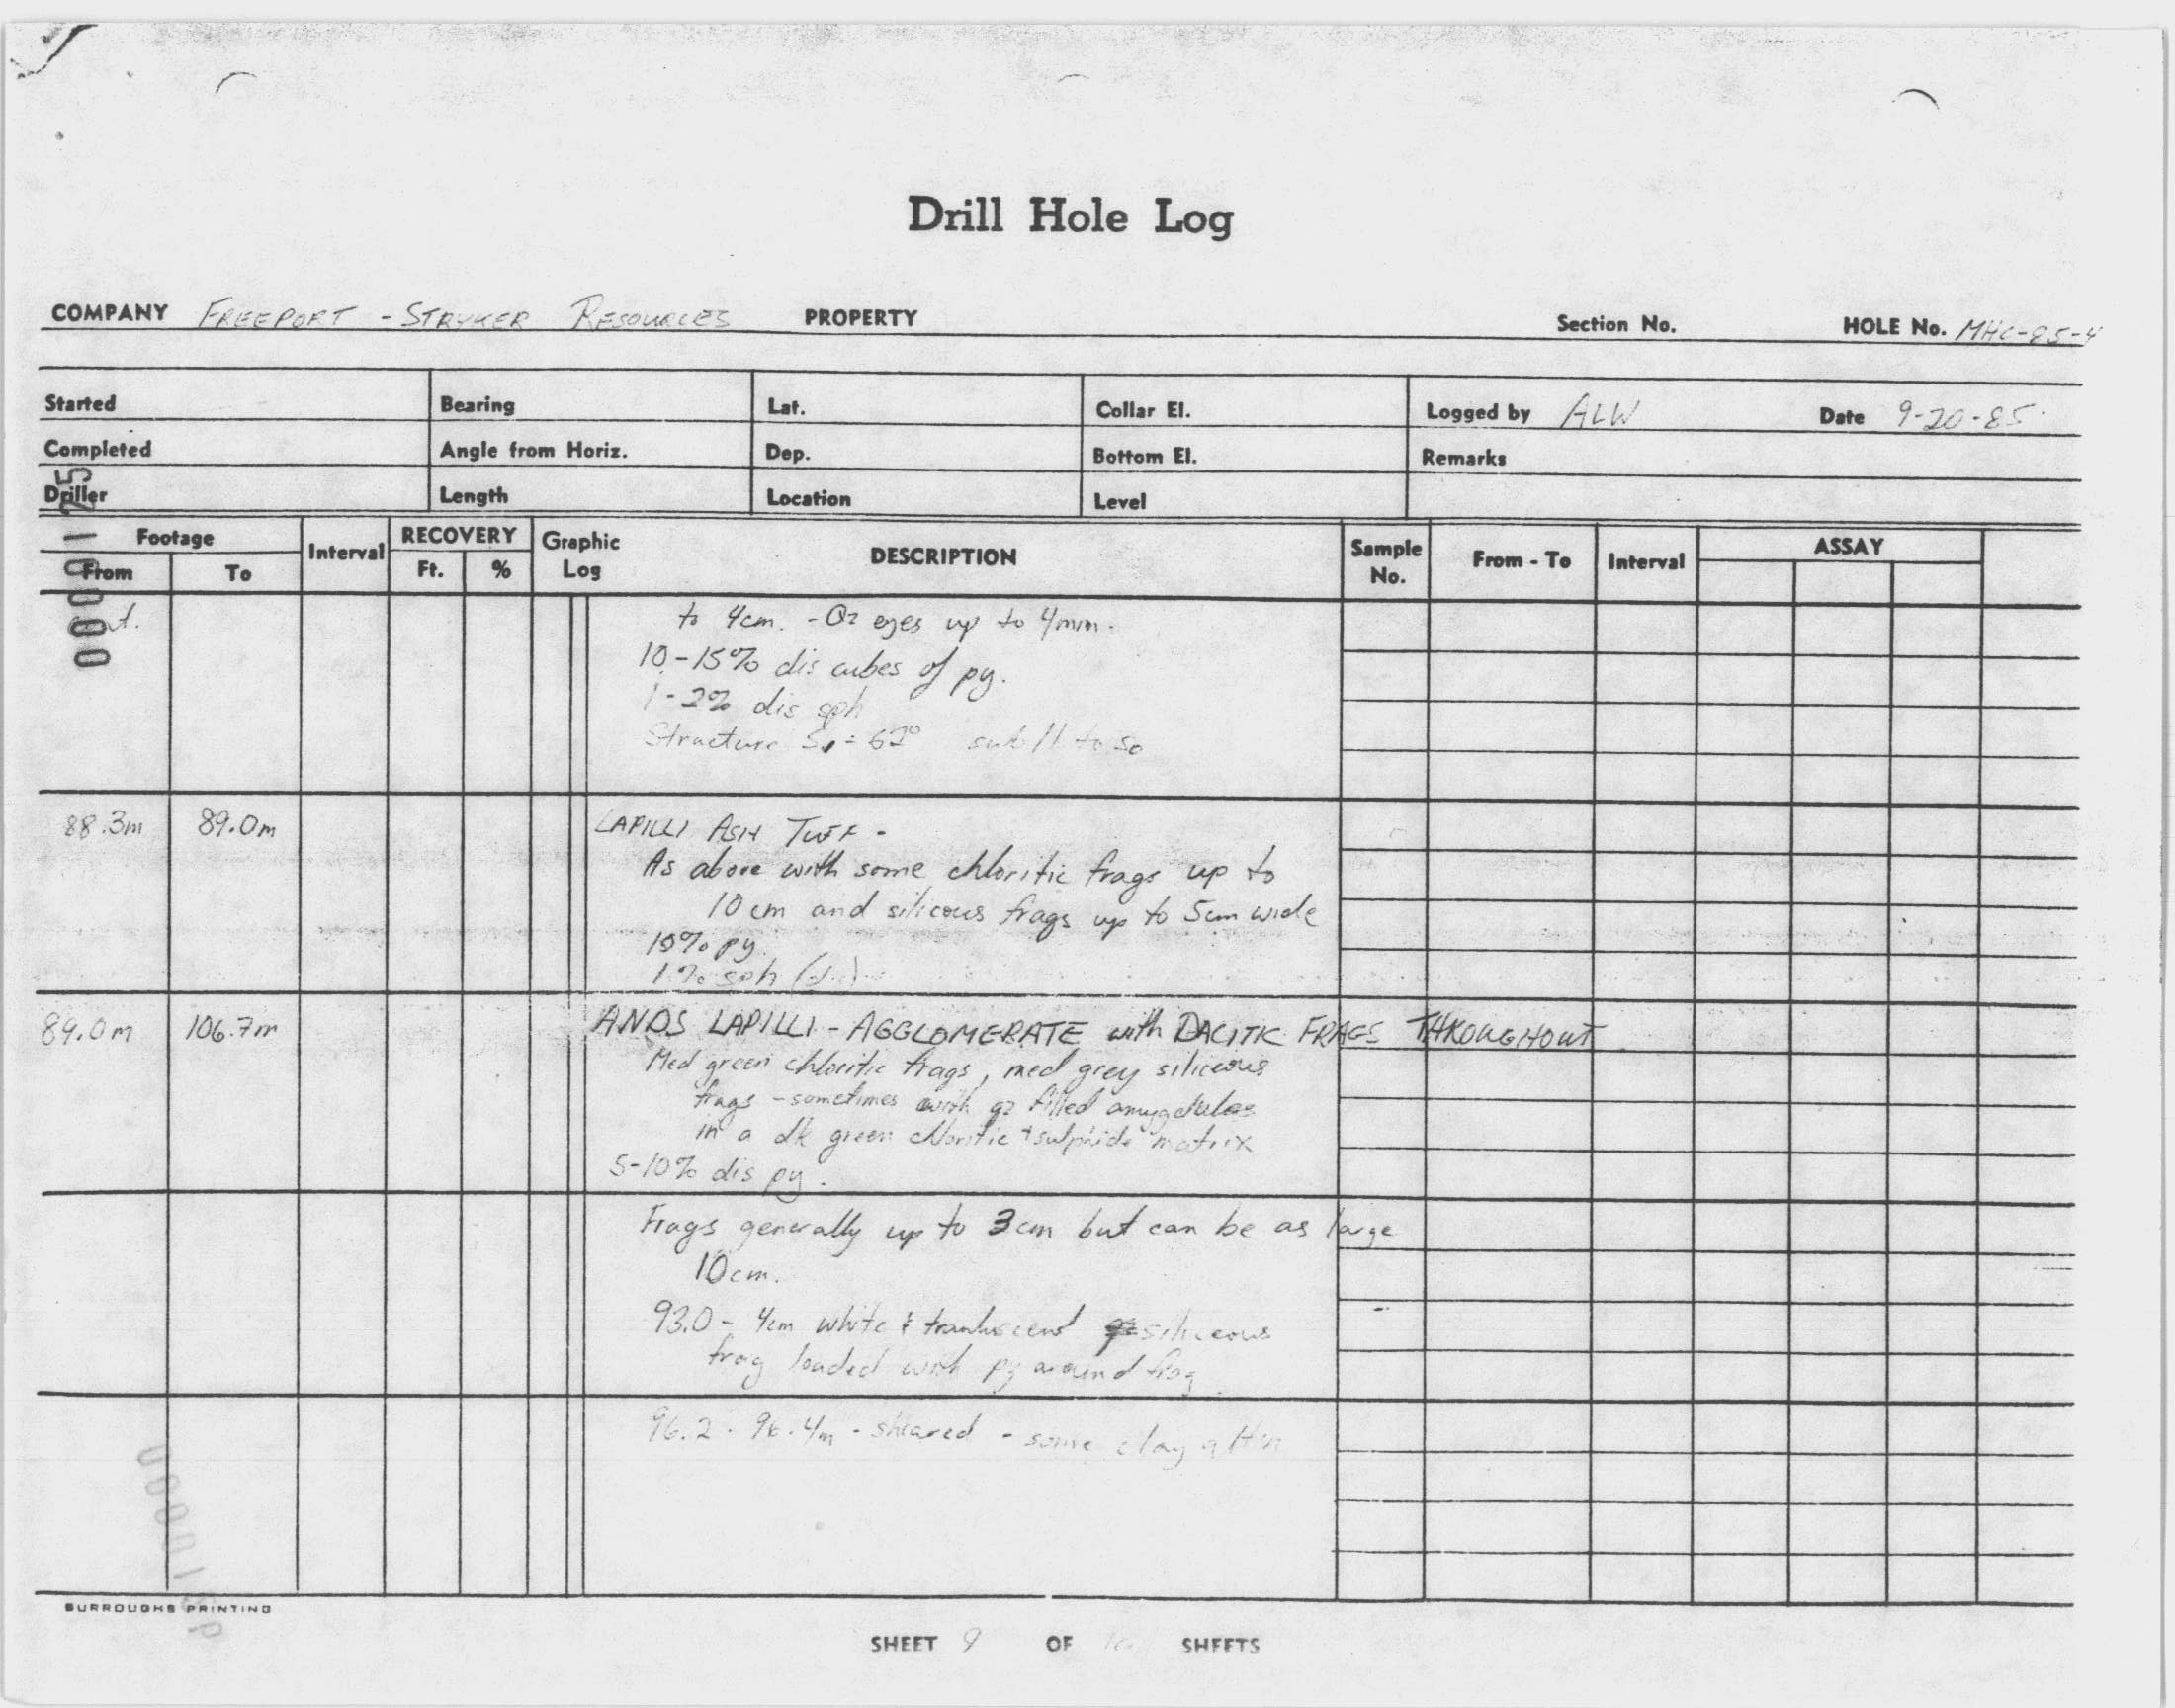 Drill Hole Log
COMPANY FREEPORT - STRYKER RESOURCES PROPERTY Section No. HOLE No. MHC-85-4
Started Bearing Lat. Collar El. Logged by ALW Date 9-20-85
Completed Angle from Horiz. Dep. Bottom El. Remarks
Driller Length Location Level
Footage Interval RECOVERY Graphic Log DESCRIPTION Sample No. From - To Interval ASSAY
From To Ft. %
to 4cm. - Qz eyes up to 4mm.
10-15% dis cubes of py.
1-2% dis sph
Structure = 62° sub // to So
88.3m 89.0m LAPILLI ASH TUFF -
As above with some chloritic frags up to
10 cm and silicous frags up to 5cm wide
10% py.
1% sph
89.0m 106.7m ANDS LAPILLI - AGGLOMERATE with DACITIC FRAGS THROUGHOUT
Med green chloritic frags, med grey siliceous
frags - sometimes with qz filled amygdules
in a dk green chloritic + sulphide matrix
5-10% dis py.
Frags generally up to 3cm but can be as large
10cm.
93.0 - 4cm white & tranluscent siliceous
frag loaded with py around frag
96.2 - 96.4m - sheared - some clay altn
BURROUGHS PRINTING
SHEET 9 OF SHEETS